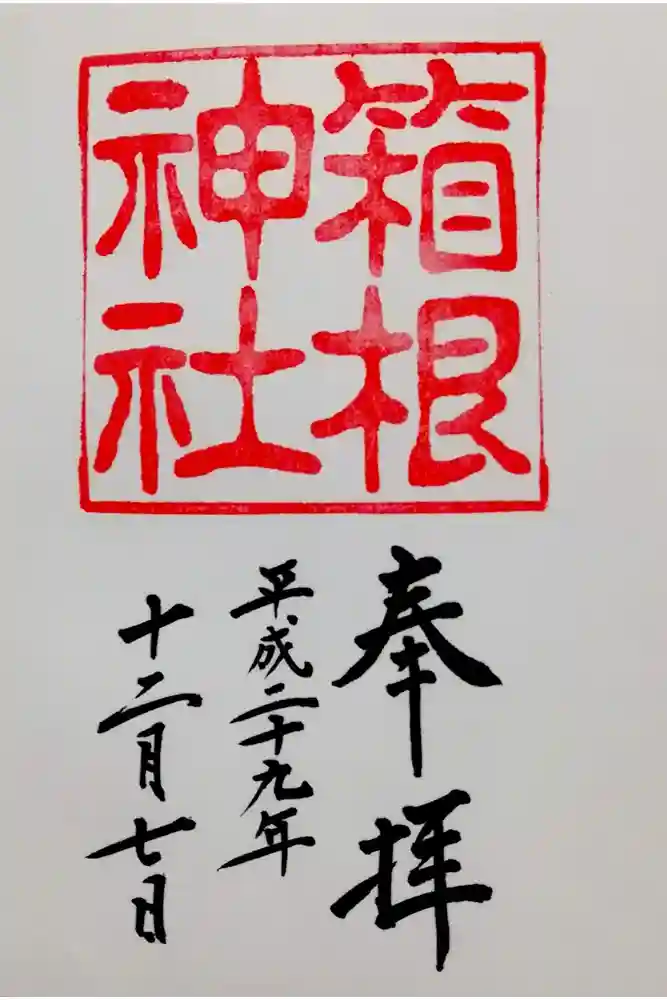 箱根
神社
奉拝
平成二十九年
十二月七日